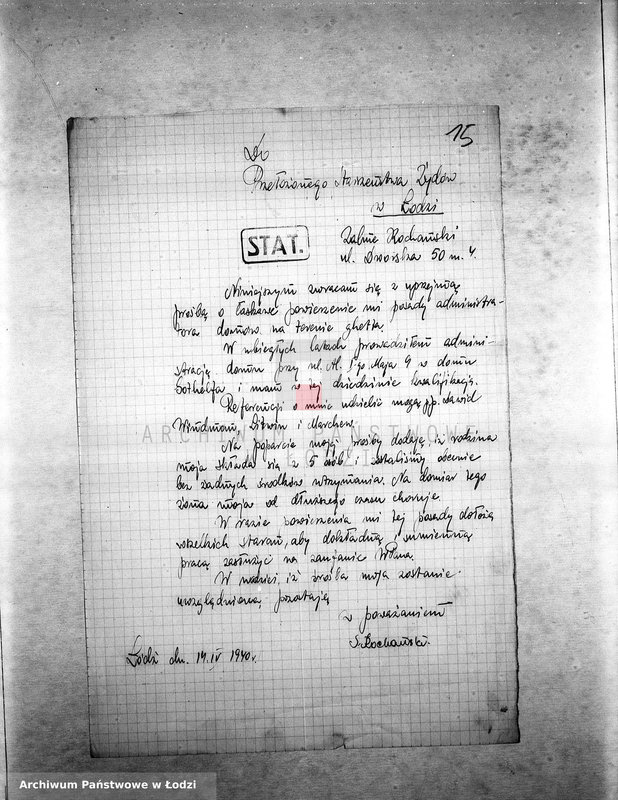 15
Do
Przełożonego Starszeństwa Żydów
w Łodzi
STAT.
Zalme Rochański
ul. Dworska 50 m. 4.
Niniejszym zwracam się z uprzejmą
prośbą o łaskawe powierzenie mi posady administra-
tora domów na terenie ghetta.
W ubiegłych latach prowadziłem admini-
strację domu przy ul. Al. 1-go Maja 9 w domu
i mam w tej dziedzinie kwalifikacje.
Referencji o mnie udzielić mogą pp. Dawid
i
Na poparcie mojej prośby dodaję, iż rodzina
moja składa się z 5 osób i zostaliśmy obecnie
bez żadnych środków utrzymania. Na domiar tego
żona moja od dłuższego czasu choruje.
W razie powierzenia mi tej posady dołożę
wszelkich starań, aby dokładną i sumienną
pracą zasłużyć na zaufanie WPana.
W nadziei, iż prośba moja zostanie
uwzględnioną pozostaję
z poważaniem
S. Rochański.
Łódź dn. 14. IV 1940 r.
ARCHIWUM PAŃSTWOWE
W ŁODZI
Archiwum Państwowe w Łodzi